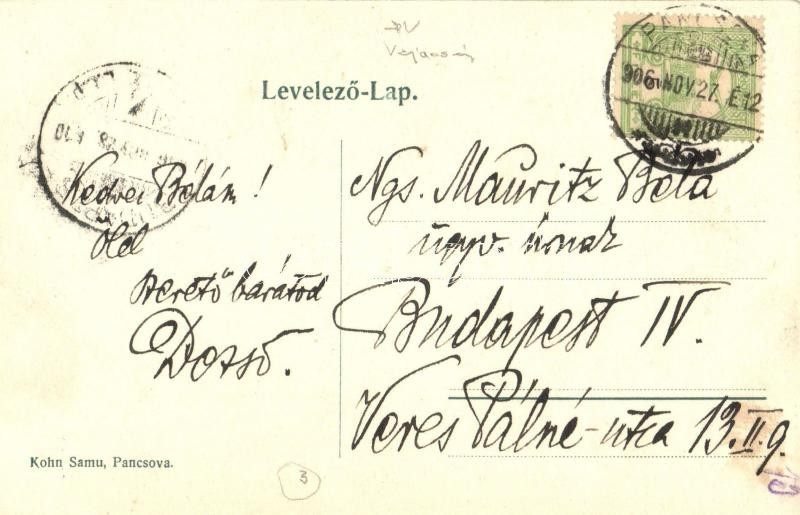 Levelező-Lap.
906 NOV. 27. É 12
Kedves Bélám!
Ölel
szerető barátod
Dezső.
Ngs. Mauritz Béla
ügyv. úrnak
Budapest IV.
Veres Pálné-utca 13. II. 9.
Kohn Samu, Pancsova.
3